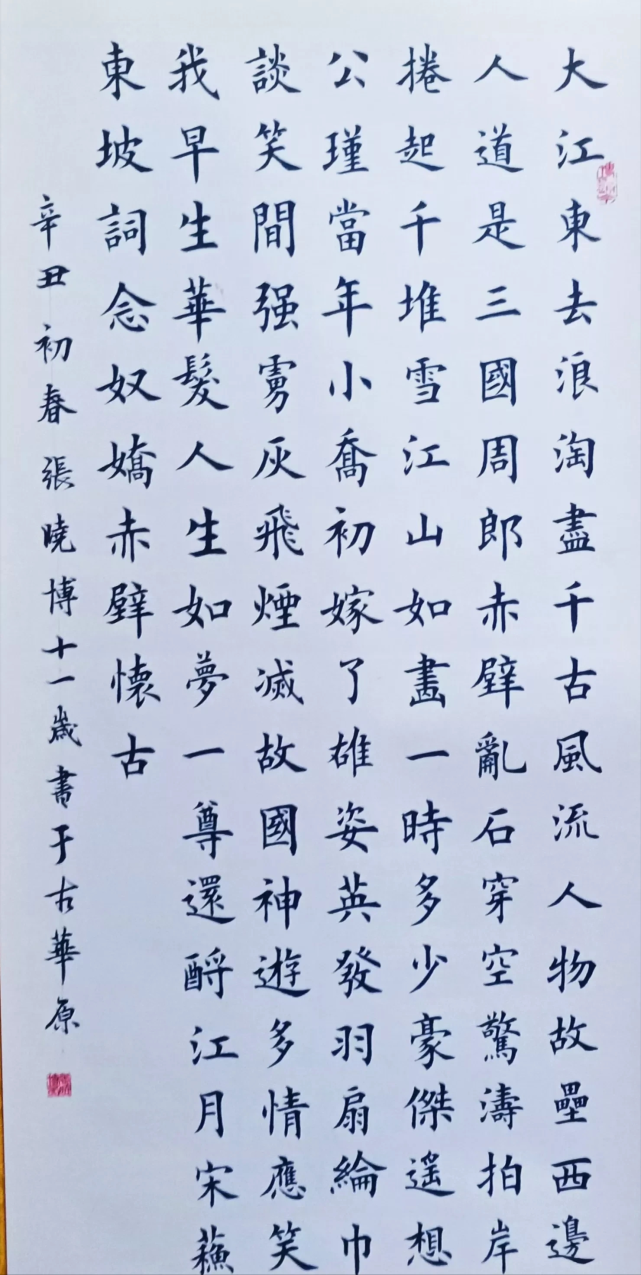 大江東去浪淘盡千古風流人物故壘西邊
人道是三國周郎赤壁亂石穿空驚濤拍岸
捲起千堆雪江山如畫一時多少豪傑遥想
公瑾當年小喬初嫁了雄姿英發羽扇綸巾
談笑間强虜灰飛煙滅故國神遊多情應笑
我早生華髮人生如夢一尊還酹江月宋蘓
東坡詞念奴嬌赤壁懷古
辛丑初春張曉博十一歲書于古華原